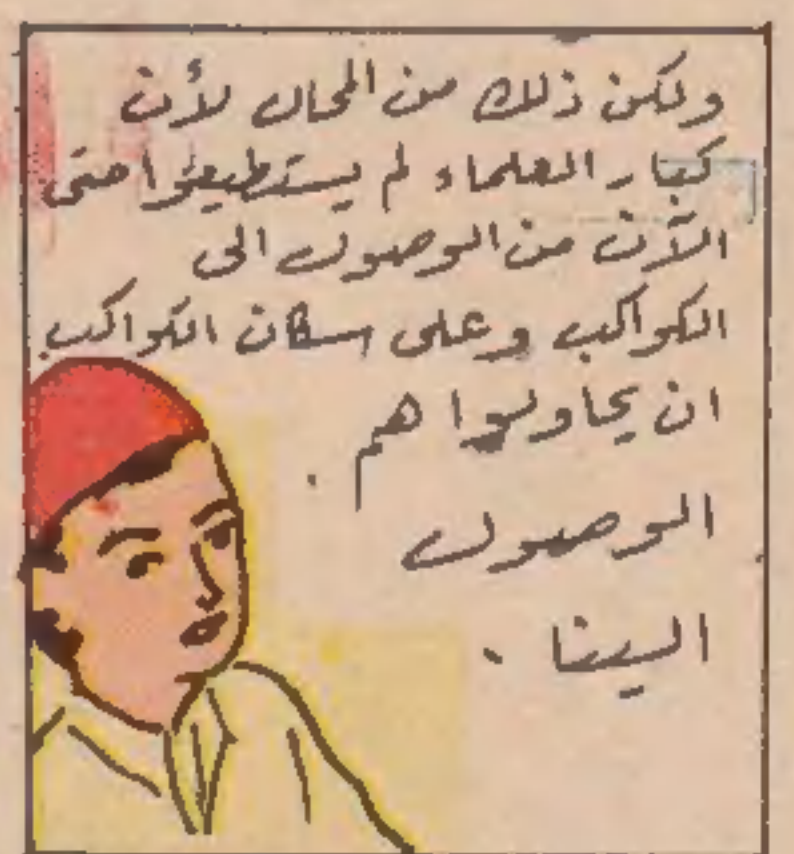 ولكن ذلك من المحال لأن
كبار العلماء لم يستطيعوا حتى
الآن من الوصول الى
الكواكب وعلى سكان الكواكب
ان يحاولوا هم .
الوصول
الينا .